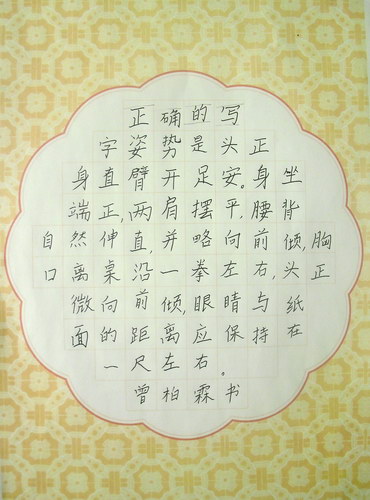 正确的写
字姿势是头正
身直臂开足安。身坐
端正,两肩摆平,腰背
自然伸直,并略向前倾,胸
口离桌沿一拳左右,头正
微向前倾,眼睛与纸
面的距离应保持在
一尺左右。
曾柏霖书